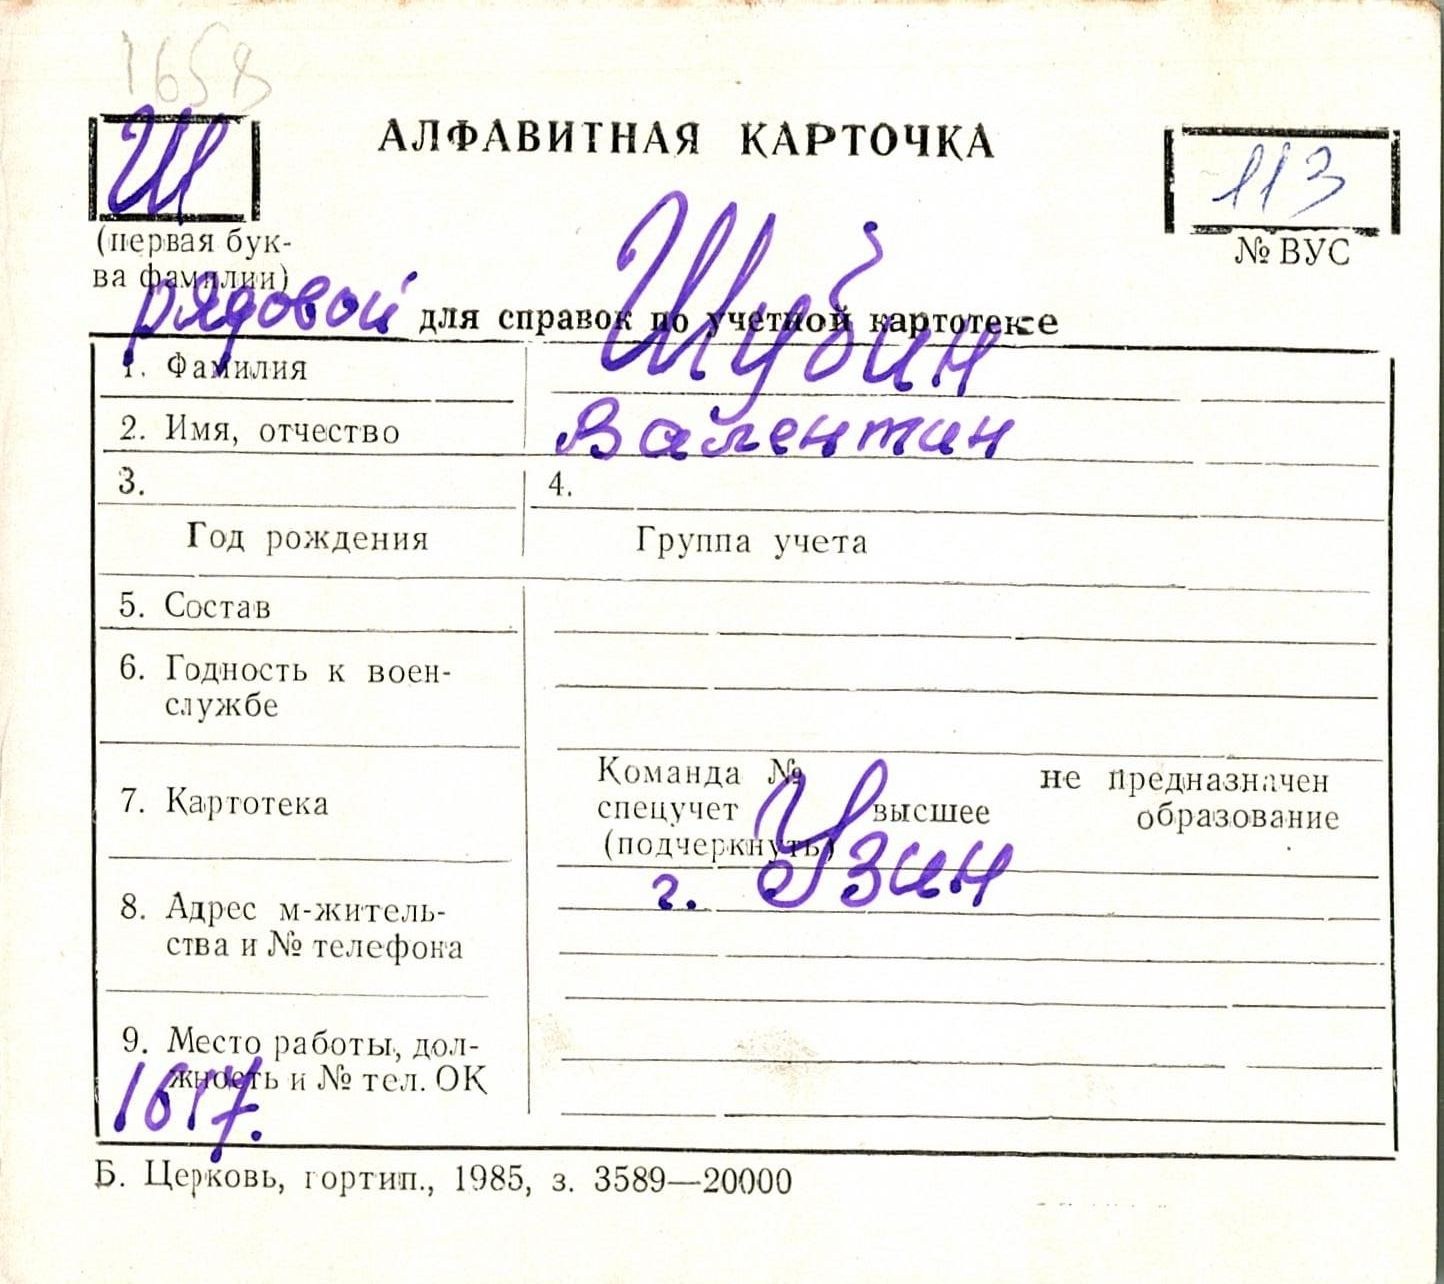 1658
Ш
АЛФАВИТНАЯ КАРТОЧКА
113
(первая бук-
ва фамилии)
№ ВУС
рядовой
для справок по учетной картотеке
1. Фамилия Шубин
2. Имя, отчество Валентин
3. 4.
Год рождения Группа учета
5. Состав
6. Годность к воен-
службе
7. Картотека
Команда № не предназначен
спецучет высшее образование
(подчеркнуть)
г. Узин
8. Адрес м-житель-
ства и № телефона
9. Место работы, дол-
жность и № тел. ОК
1617.
Б. Церковь, гортип., 1985, з. 3589—20000